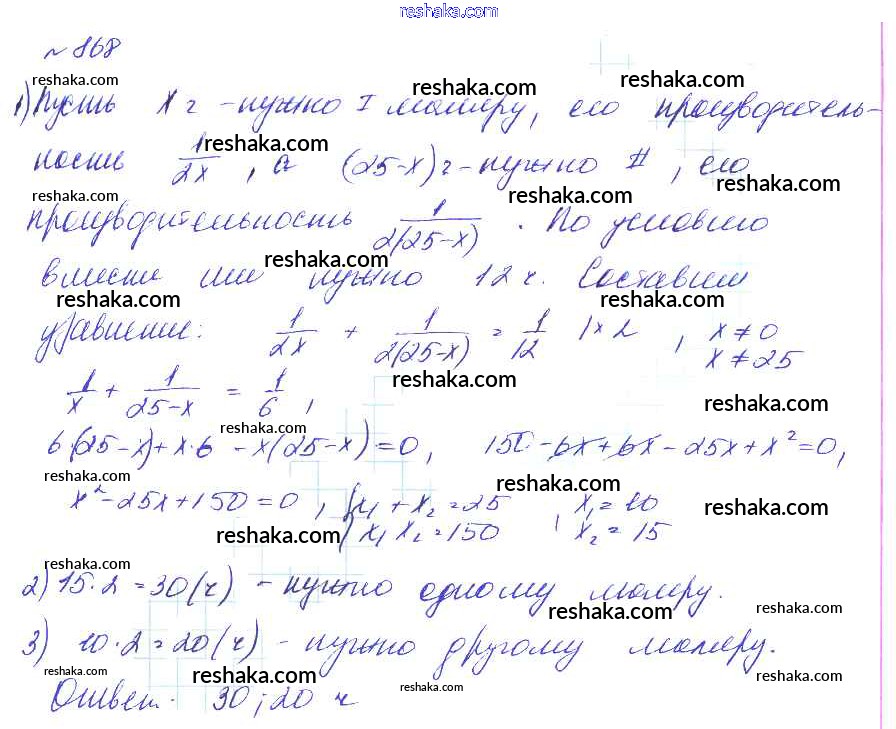 reshaka.com
№ 868
reshaka.com reshaka.com reshaka.com
1) Пусть x ч - нужно I маляру, его производитель-
reshaka.com
ность 1/2x, а (25-x) ч - нужно II, его
reshaka.com reshaka.com reshaka.com
производительность 1/2(25-x). По условию
reshaka.com
вместе им нужно 12 ч. Составим
reshaka.com reshaka.com
уравнение: 1/2x + 1/2(25-x) = 1/12 |×2, x ≠ 0
x ≠ 25
reshaka.com
1/x + 1/25-x = 1/6,
reshaka.com reshaka.com
6(25-x)+x·6 - x(25-x)=0, 150-6x+6x-25x+x²=0,
reshaka.com reshaka.com
x²-25x+150=0, {x₁+x₂=25, x₁=10
x₁x₂=150 x₂=15
reshaka.com reshaka.com
reshaka.com
2) 15·2=30(ч) - нужно одному маляру.
reshaka.com reshaka.com
3) 10·2=20(ч) - нужно другому маляру.
reshaka.com reshaka.com reshaka.com
Ответ: 30; 20 ч